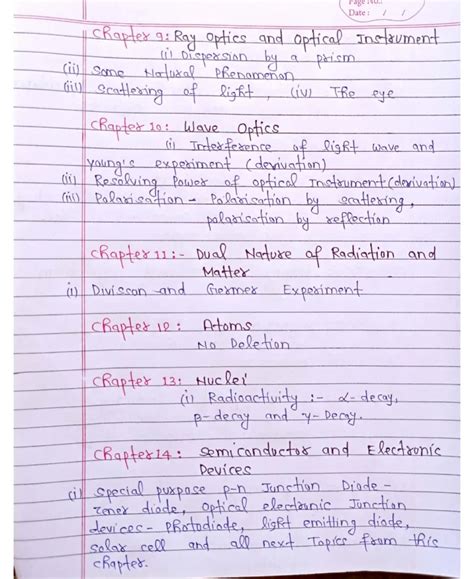 Page No.:
Date: / /
Chapter 9: Ray Optics and Optical Instrument
(i) Dispersion by a prism
(ii) Some Natural Phenomenon
(iii) Scattering of light, (iv) The eye
Chapter 10: Wave Optics
(i) Interference of light wave and
young's experiment (derivation)
(ii) Resolving Power of optical Instrument (derivation)
(iii) Polarisation - Polarisation by scattering,
polarisation by reflection
Chapter 11:- Dual Nature of Radiation and
Matter
(i) Divisson and Germer Experiment
Chapter 12: Atoms
No Deletion
Chapter 13: Nuclei
(i) Radioactivity :- α-decay,
β-decay and γ-Decay.
Chapter 14: Semiconductor and Electronic
Devices
(i) Special purpose p-n Junction Diode -
zener diode, optical electronic Junction
devices - Photodiode, light emitting diode,
solar cell and all next Topics from this
Chapter.